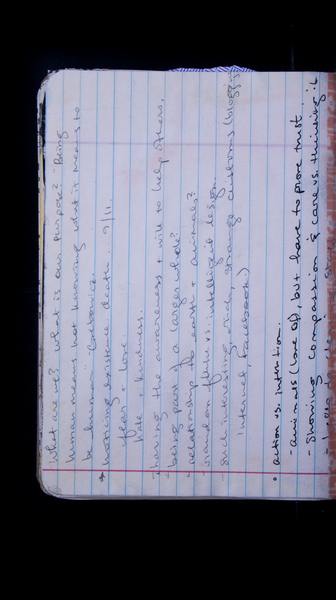 What are we? What is our purpose? "Being
human means not knowing what it means to
be human"
* morning existence death. 9/11.
fear + love
hate + kindness.
- having the awareness + will to help others,
- being part of a larger whole?
- relationship to earth + animals?
- random fluke vs. intelligent design.
- such interesting, rich, strange customs (blogging
internet, facebook)
• action vs. intention.
- animals (love of), but have to prove trust
- showing compassion & care vs. thinking it